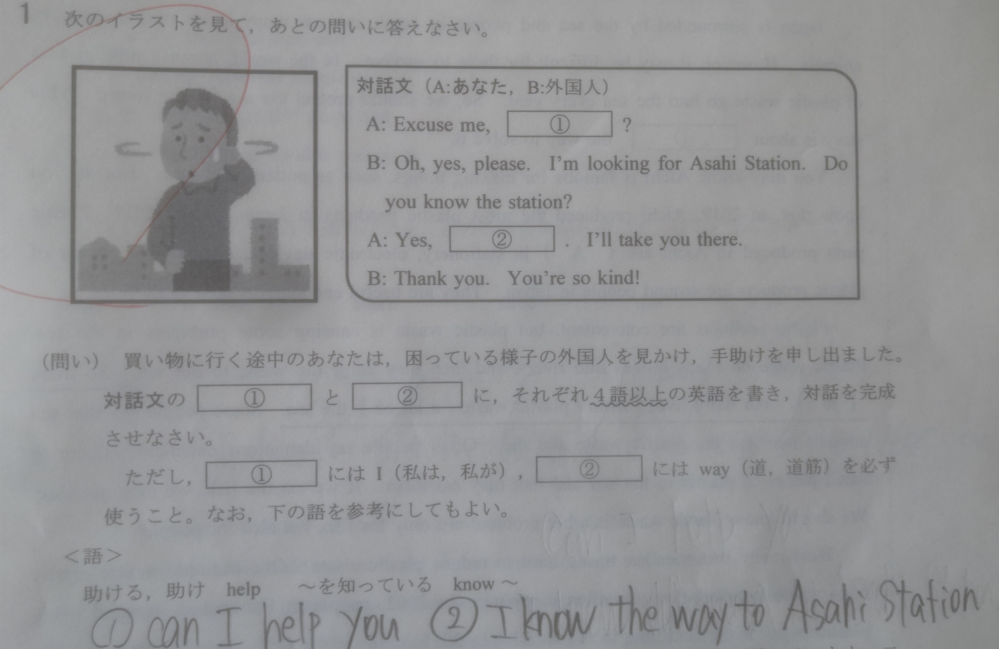 1 次のイラストを見て，あとの問いに答えなさい。
対話文（A:あなた，B:外国人）
A: Excuse me, ① ?
B: Oh, yes, please. I'm looking for Asahi Station. Do
you know the station?
A: Yes, ② . I'll take you there.
B: Thank you. You're so kind!
（問い） 買い物に行く途中のあなたは，困っている様子の外国人を見かけ，手助けを申し出ました。
対話文の ① と ② に，それぞれ4語以上の英語を書き，対話を完成
させなさい。
ただし， ① には I（私は，私が）， ② には way（道，道筋）を必ず
使うこと。なお，下の語を参考にしてもよい。
＜語＞
助ける，助け help ～を知っている know～
① can I help you ② I know the way to Asahi Station